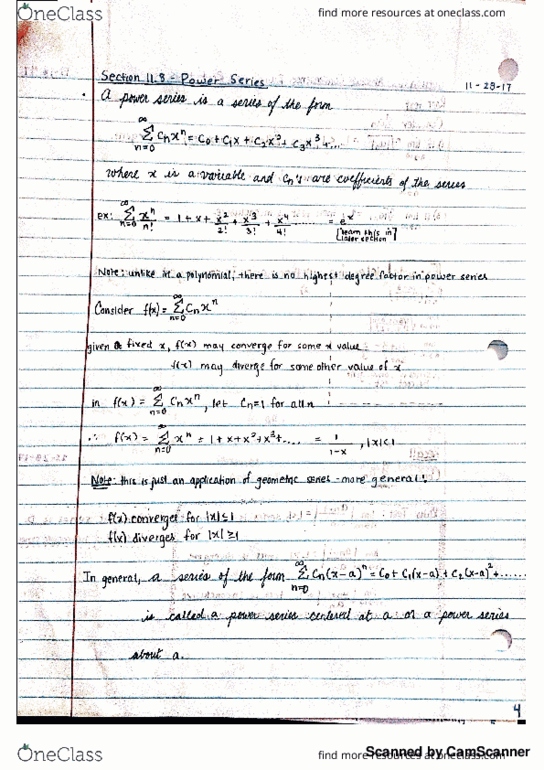 OneClass
find more resources at oneclass.com
Section 11.8 - Power Series
11-28-17
• A power series is a series of the form
∞ Σ n=0 Cₙxⁿ = C₀ + C₁x + C₂x² + C₃x³ + ....
where x is a variable and Cₙ's are coefficients of the series
ex: ∞ Σ n=0 xⁿ/n! = 1 + x + x²/2! + x³/3! + x⁴/4! = eˣ
[learn this in later section]
Note: unlike in a polynomial, there is no highest degree factor in power series
Consider f(x) = ∞ Σ n=0 Cₙxⁿ
given a fixed x, f(x) may converge for some x value
f(x) may diverge for some other value of x.
in f(x) = ∞ Σ n=0 Cₙxⁿ, let Cₙ=1 for all n
∴ f(x) = ∞ Σ n=0 xⁿ = 1 + x + x² + x³ + .... = 1/1-x , |x|<1
Note: this is just an application of geometric series - more general!
f(x) converges for |x|≤1
f(x) diverges for |x|≥1
In general, a series of the form ∞ Σ n=0 Cₙ(x-a)ⁿ = C₀ + C₁(x-a) + C₂(x-a)² + ......
is called a power series centered at a or a power series
about a.
4
OneClass
find more resources at oneclass.com
Scanned by CamScanner